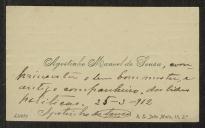 Agostinho Manuel de Souza, com
primenta o seu bom mestre, e
antigo companheiro, das lides
políticas. 25-3-912
Agostinho de Souza
Lisboa R. S. João da Mata,